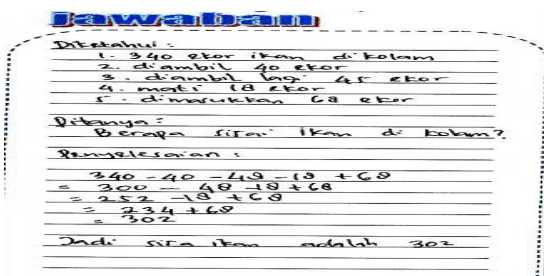 Jawaban
Diketahui :
1. 340 ekor ikan di kolam
2. diambil 40 ekor
3. diambil lagi 48 ekor
4. mati 18 ekor
5. dimasukkan 68 ekor
Ditanya :
Berapa sisa ikan di kolam?
Penyelesaian :
340 - 40 - 48 - 18 + 68
= 300 - 48 - 18 + 68
= 252 - 18 + 68
= 234 + 68
= 302
Jadi sisa ikan adalah 302